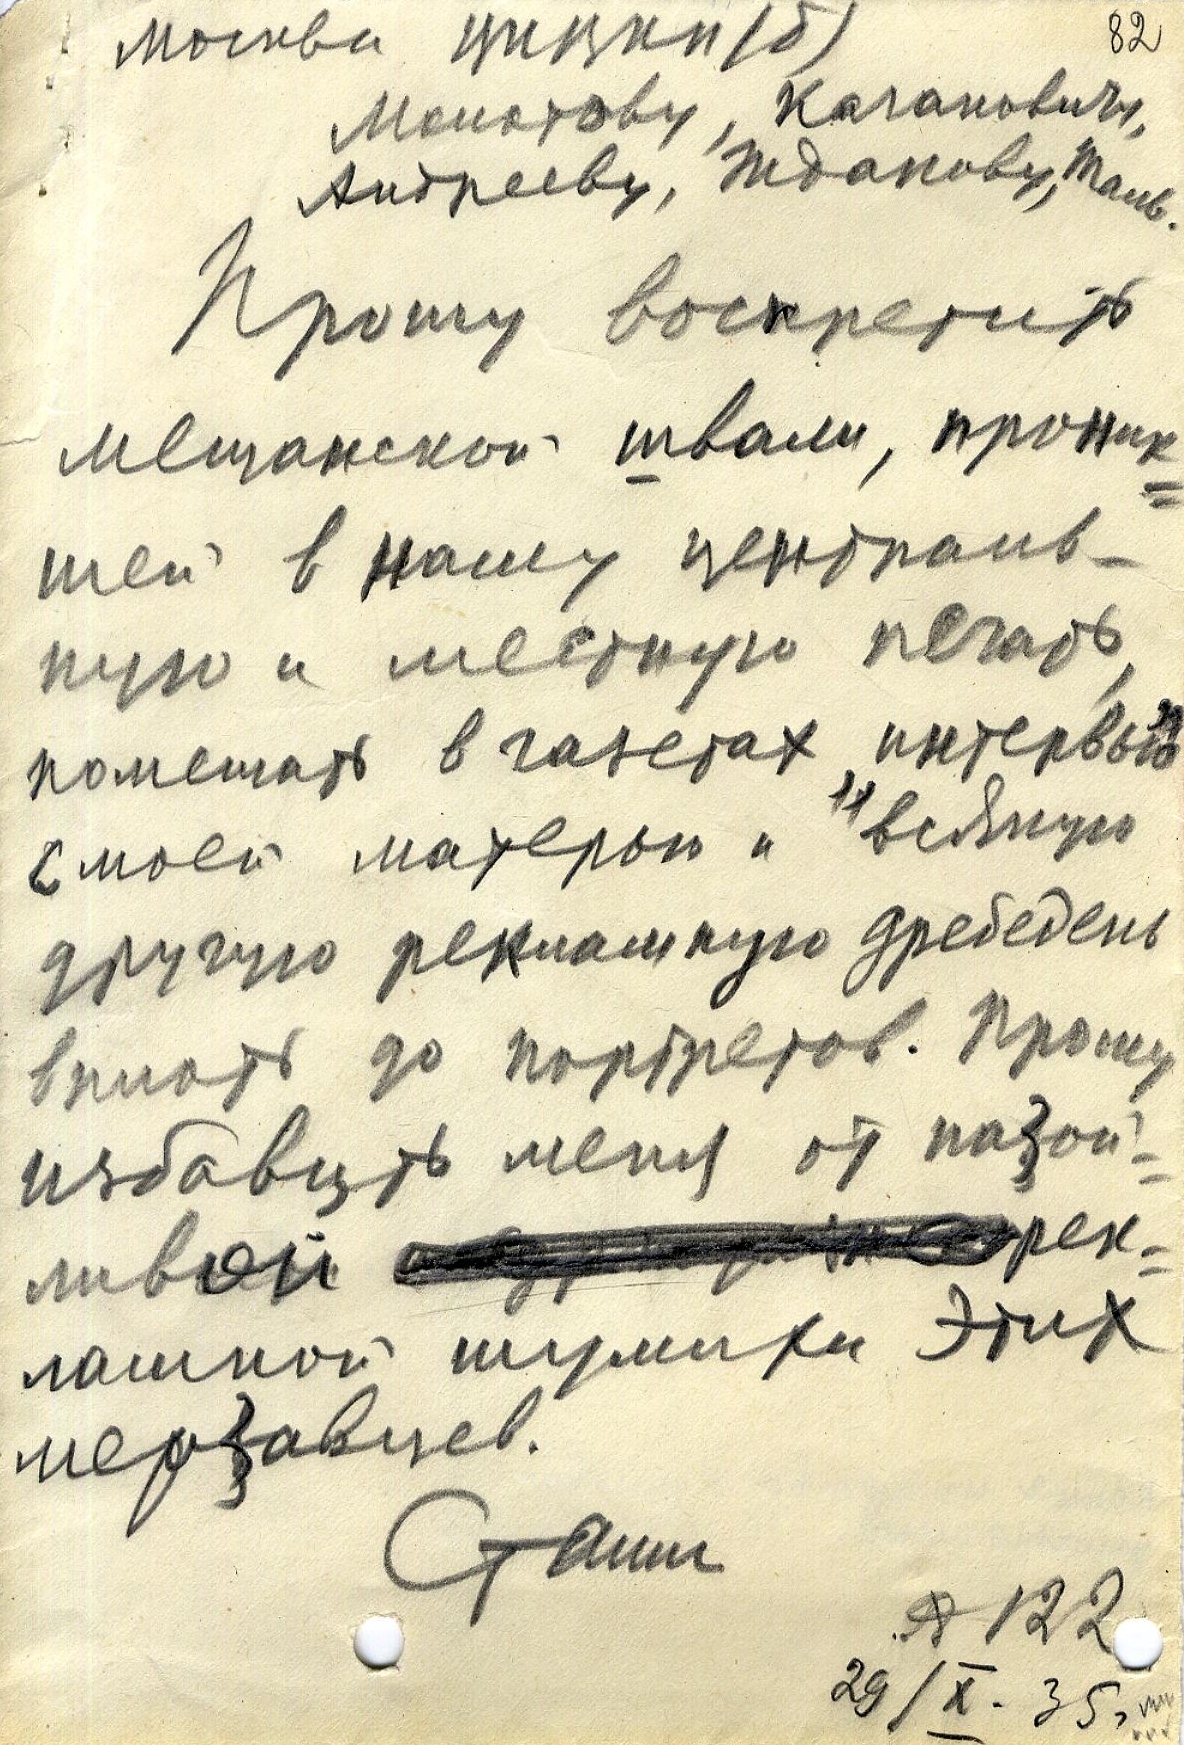 Москва ЦКВКП(б)
82
Молотову, Кагановичу,
Андрееву, Жданову, Таль.
Прошу воспретить
мещанской швали, проник=
шей в нашу централь-
ную и местную печать,
помещать в газетах "интервью"
с моей матерью и всякую
другую рекламную дребедень
вплоть до портретов. Прошу
избавить меня от назой=
ливой рек=
ламной шумихи этих
мерзавцев.
Сталин
122
29/IX. 35,